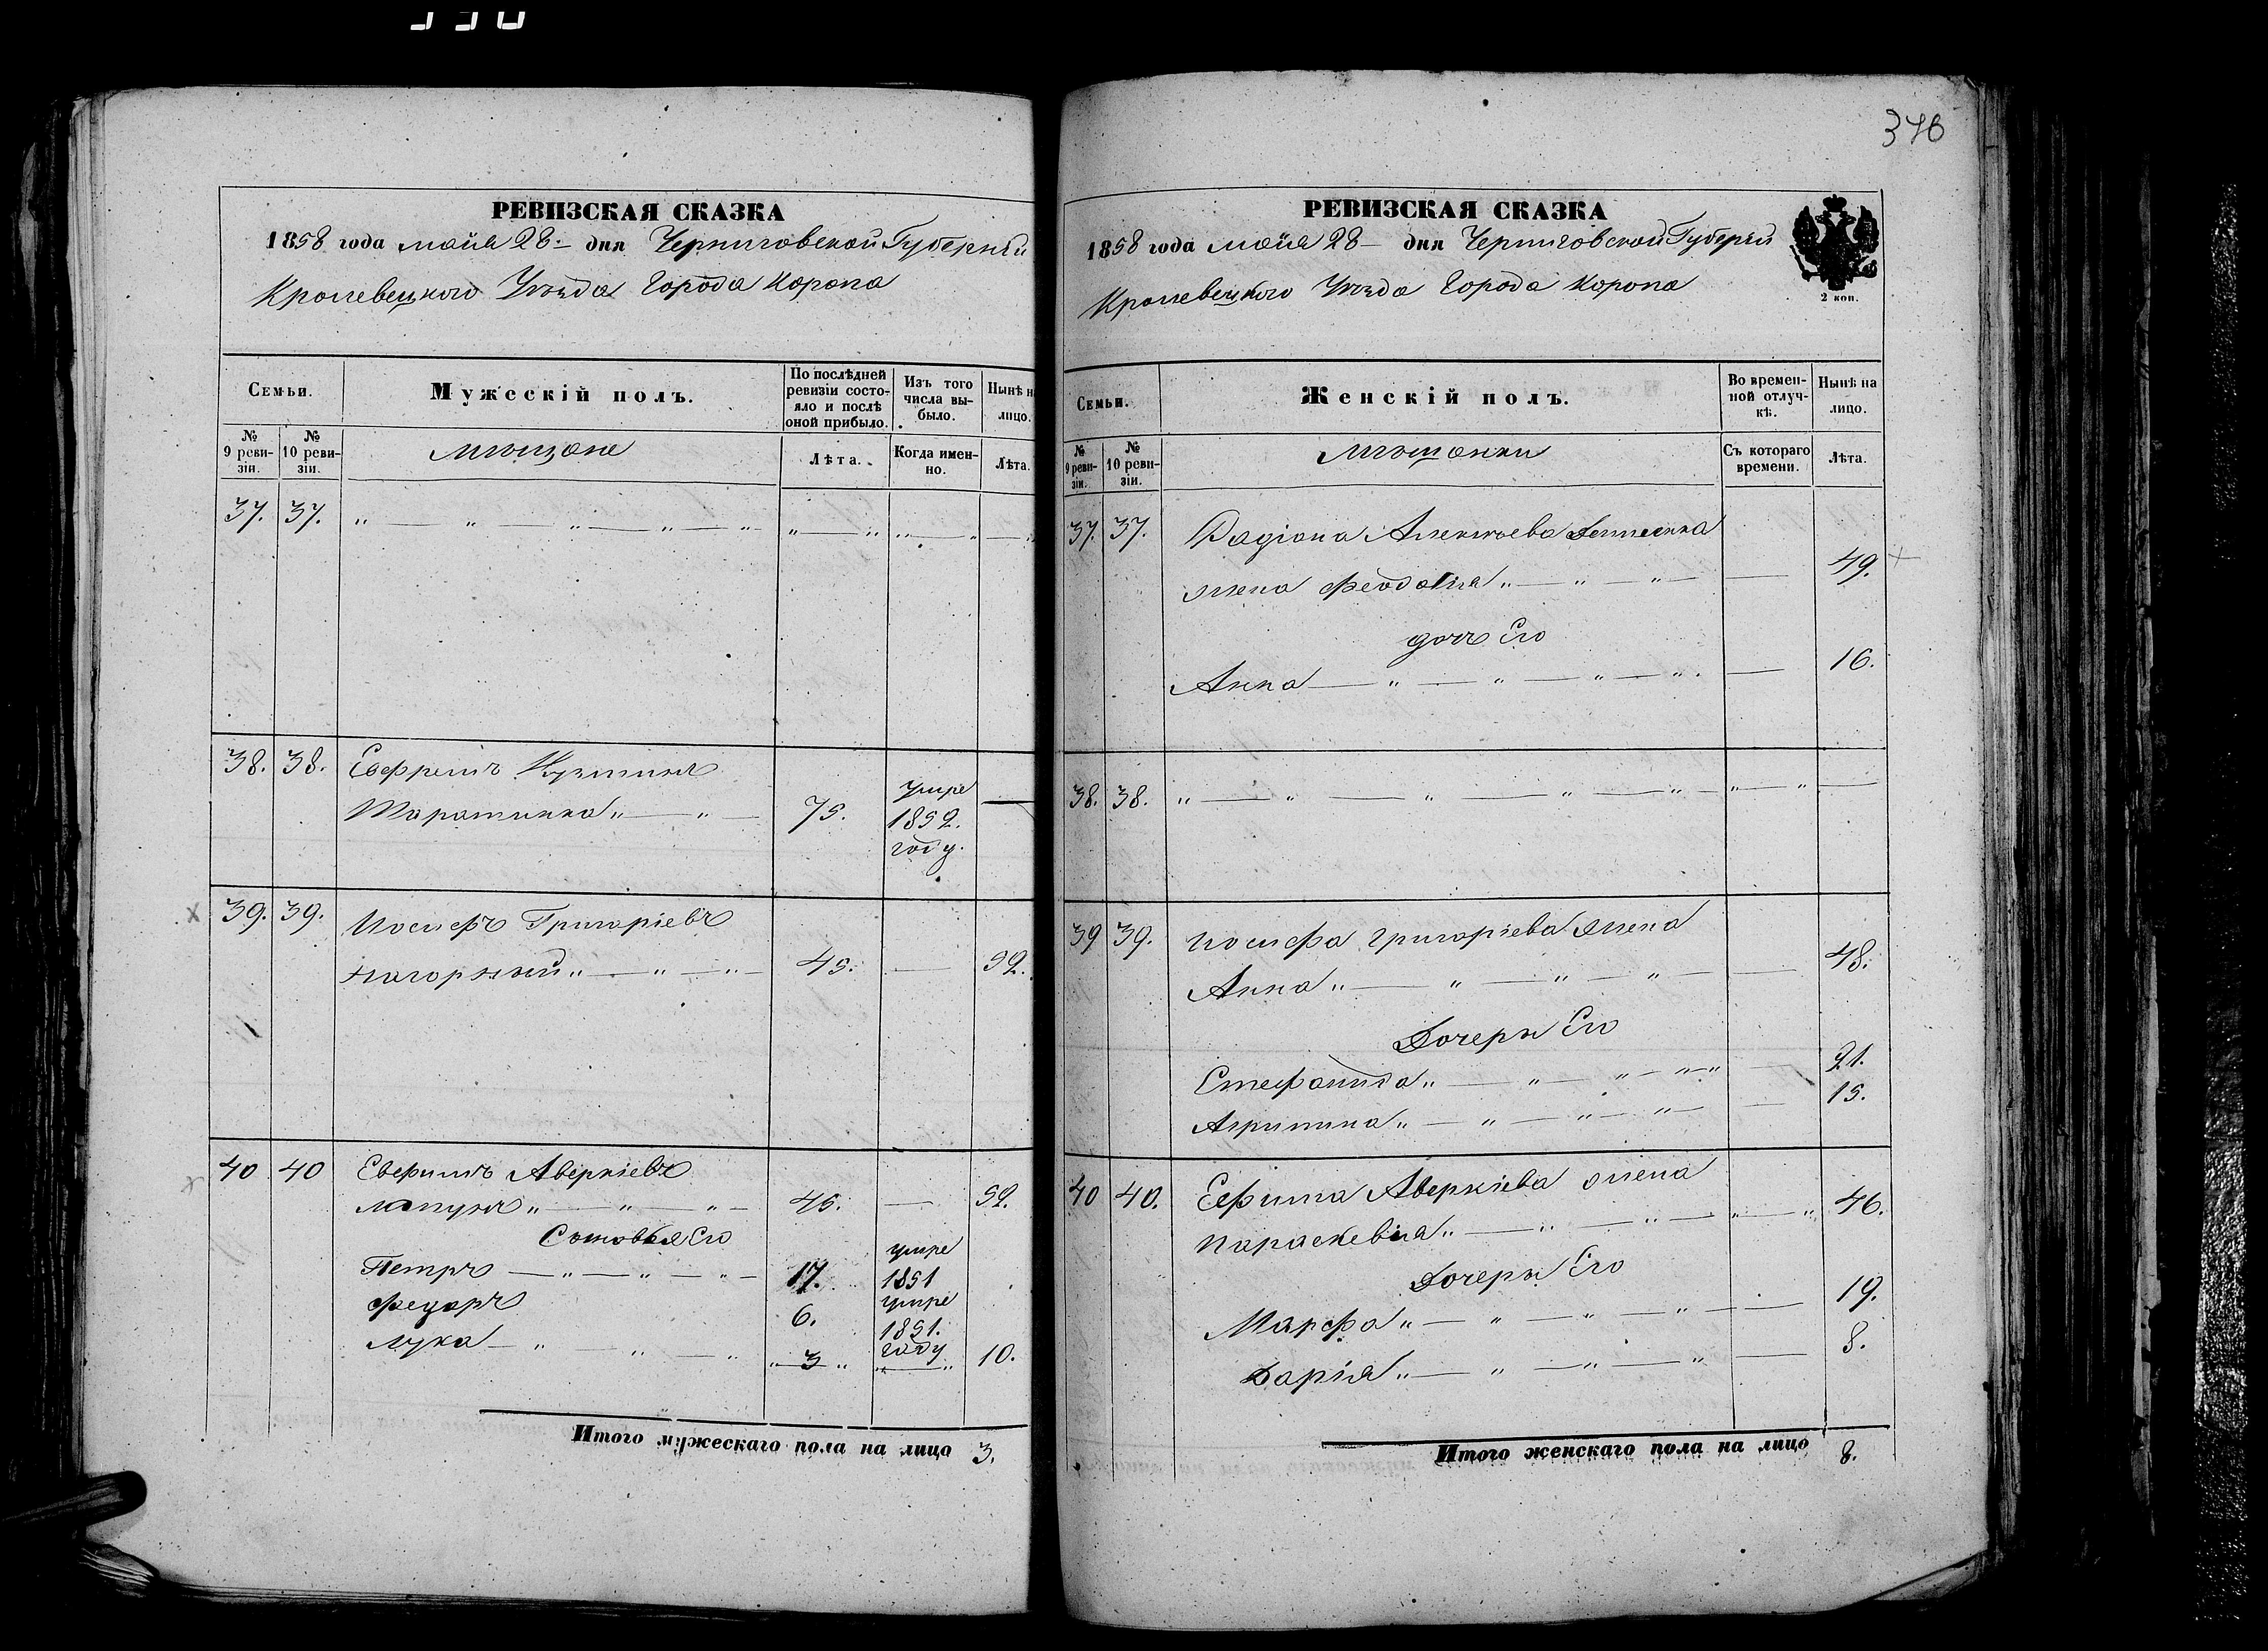 346
РЕВИЗСКАЯ СКАЗКА
1858 года майя 28 дня Черниговской Губерніи
Кролевецкого Уѣзда Города Коропа
Семьи.
Мужескій полъ.
По послѣдней ревизіи состояло и послѣ оной прибыло.
Изъ того числа выбыло.
Нынѣ на лицо.
№ 9 ревизіи.
№ 10 ревизіи.
мѣщане
Лѣта.
Когда именно.
Лѣта.
37. 37.
38. 38. Ефремъ
75. умре
1852.
году.
39. 39. Иосифъ Григоріевъ
Нагорный 45. 52.
40 40 Евфимъ Аверкіевъ
45. 52.
Сыновья Его
Петръ 17. умре
1851
Федоръ 6. умре
1851.
году
Лука 3 10.
Итого мужескаго пола на лицо 3.
РЕВИЗСКАЯ СКАЗКА
1858 года майя 28 дня Черниговской Губерніи
Кролевецкого Уѣзда Города Коропа
2 коп.
Семьи.
Женскій полъ.
Во временной отлучкѣ.
Нынѣ на лицо.
№ 9 ревизіи.
№ 10 ревизіи.
мѣщанки
Съ котораго времени.
Лѣта.
37. 37. Радіона Алексѣева
жена Феодосія 49.
дочь Его
Анна 16.
38. 38.
39 39. Иосифа Григоріева жена
Анна 48.
Дочери Его
Стефанида 21.
Агрипина 15.
40 40. Ефима Аверкіева жена
Параскевія 46.
Дочери Его
Марфа 19.
Дарія 8.
Итого женскаго пола на лицо 8.